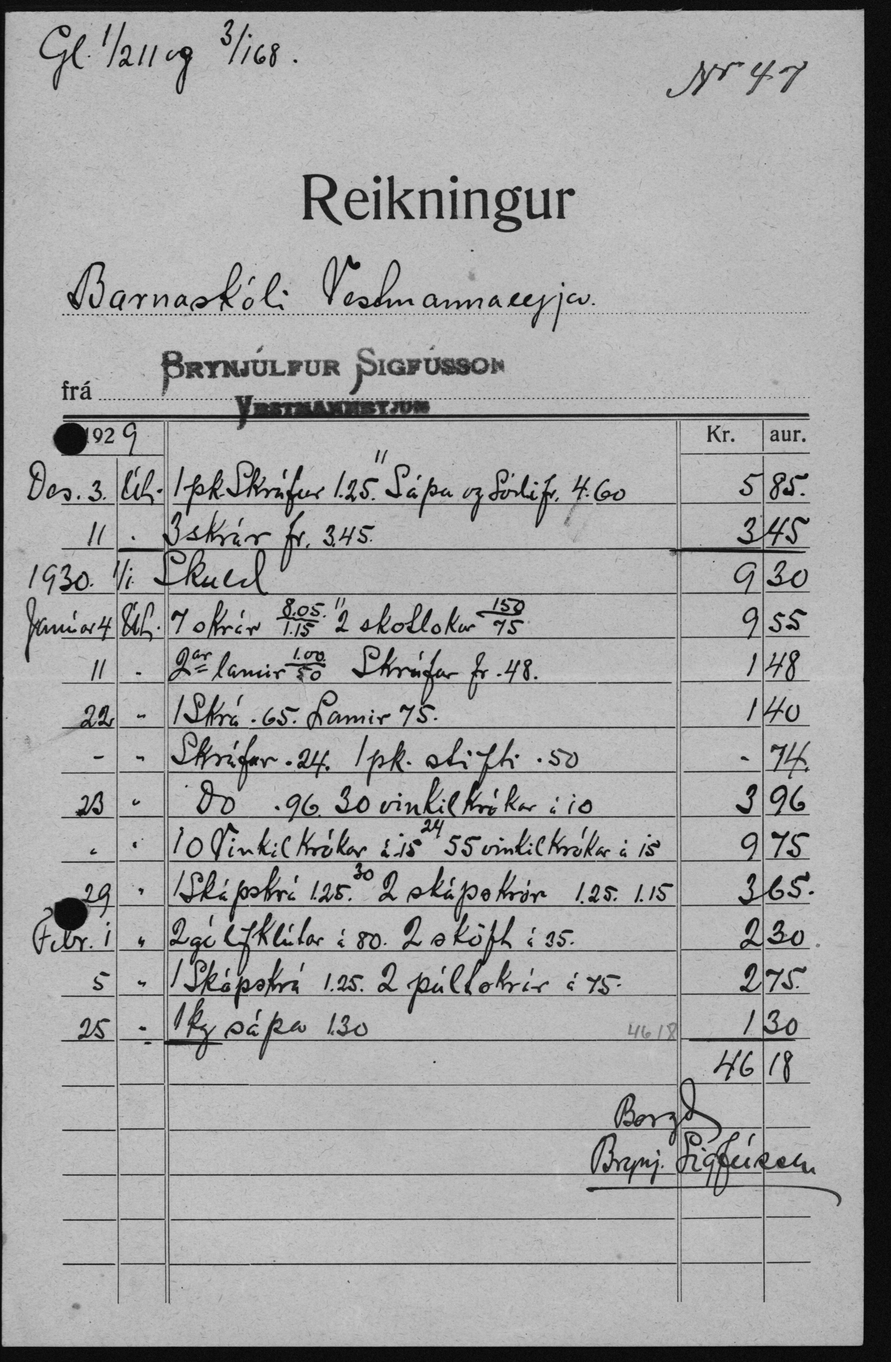 Gl. 1/211 og 3/168.
Nr 47
Reikningur
Barnaskóli Vestmannaeyja.
frá BRYNJÚLFUR SIGFÚSSON
VESTMANNEYJUM
1929 Kr. aur.
Des. 3. Út. 1 pk. Skrúfur 1.25." Sápa og Sódi fr. 4.60 5 85.
11 . 3 skrár fr. 3.45. 3 45
1930. 1/1. Skuld 9 30
Janúar 4 Út. 7 skrár 8.05/1.15 " 2 skotlokur 150/75 9 55
11 . 2ar lamir 1.00/50 Skrúfur fr .48. 1 48
22 " 1 Skrá .65. Lamir 75. 1 40
- " Skrúfur .24. 1 pk. stifti .50 - 74.
23 " Do .96. 30 vinkilkrókar á 10 3 96
" " 10 Vinkilkrókar á 15 24 55 vinkilkrókar á 15 9 75
29 " 1 Skápskrá 1.25. 30 2 skápskrár 1.25. 1.15 3 65.
Febr. 1 " 2 gólfklútar á 80. 2 sköft á 35. 2 30
5 " 1 Skápskrá 1.25. 2 púltskrár á 75. 2 75.
25 " 1 kg sápa 1.30 4618 1 30
46 18
Borgd
Brynj. Sigfússon